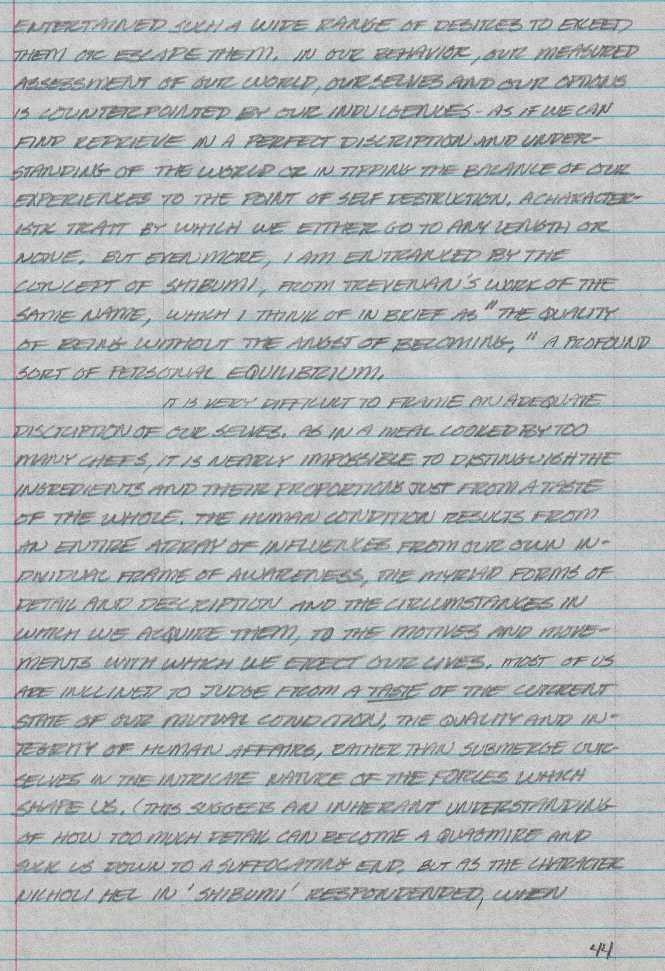 ENTERTAINED SUCH A WIDE RANGE OF DESIRES TO EXCEED
THEM OR ESCAPE THEM. IN OUR BEHAVIOR, OUR MEASURED
ASSESSMENT OF OUR WORLD, OURSELVES AND OUR OPTIONS
IS COUNTERPOINTED BY OUR INDULGENCES - AS IF WE CAN
FIND REPRIEVE IN A PERFECT DISCRIPTION AND UNDER-
STANDING OF THE WORLD OR IN TIPPING THE BALANCE OF OUR
EXPERIENCES TO THE POINT OF SELF DESTRUCTION. A CHARACTER-
ISTIC TRAIT BY WHICH WE EITHER GO TO ANY LENGTH OR
NONE. BUT EVEN MORE, I AM ENTRANCED BY THE
CONCEPT OF SHIBUMI, FROM TREVENAN'S WORK OF THE
SAME NAME, WHICH I THINK OF IN BRIEF AS "THE QUALITY
OF BEING WITHOUT THE ANGST OF BECOMING," A PROFOUND
SORT OF PERSONAL EQUILIBRIUM.
IT IS VERY DIFFICULT TO FRAME AN ADEQUATE
DISCRIPTION OF OUR SELVES. AS IN A MEAL COOKED BY TOO
MANY CHEFS, IT IS NEARLY IMPOSSIBLE TO DISTINGUISH THE
INGREDIENTS AND THEIR PROPORTIONS JUST FROM A TASTE
OF THE WHOLE. THE HUMAN CONDITION RESULTS FROM
AN ENTIRE ARRAY OF INFLUENCES FROM OUR OWN IN-
DIVIDUAL FRAME OF AWARENESS, THE MYRIAD FORMS OF
DETAIL AND DESCRIPTION AND THE CIRCUMSTANCES IN
WHICH WE ACQUIRE THEM, TO THE MOTIVES AND MOVE-
MENTS WITH WHICH WE ERECT OUR LIVES. MOST OF US
ARE INCLINED TO JUDGE FROM A TASTE OF THE CURRENT
STATE OF OUR MUTUAL CONDITION, THE QUALITY AND IN-
TEGRITY OF HUMAN AFFAIRS, RATHER THAN SUBMERGE OUR-
SELVES IN THE INTRICATE NATURE OF THE FORCES WHICH
SHAPE US. (THIS SUGGESTS AN INHERANT UNDERSTANDING
OF HOW TOO MUCH DETAIL CAN BECOME A QUAGMIRE AND
SUCK US DOWN TO A SUFFOCATING END. BUT AS THE CHARACTER
NICHOLI HEL IN 'SHIBUMI' RESPONDENDED, WHEN
44